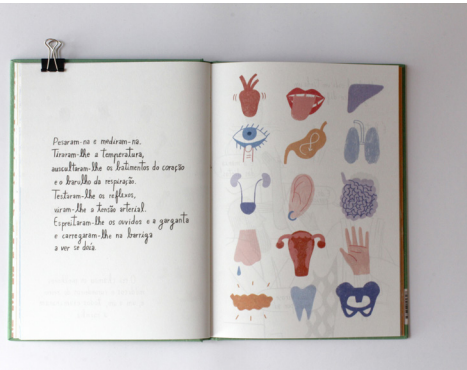 Pesaram-na e mediram-na.
Tiraram-lhe a temperatura,
auscultaram-lhe os batimentos do coração
e o barulho da respiração.
Testaram-lhe os reflexos,
viram-lhe a tensão arterial.
Espreitaram-lhe os ouvidos e a garganta
e carregaram-lhe na barriga
a ver se doía.